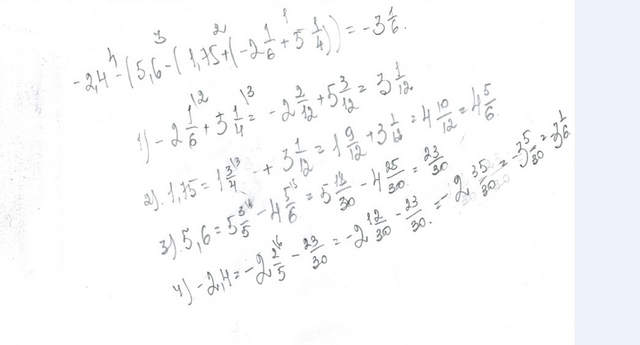 -2,4 - (5,6 - (1,75 + (-2 1/6 + 5 1/4))) = -3 1/6.
1) -2 1/6 + 5 1/4 = -2 2/12 + 5 3/12 = 3 1/12
2). 1,75 = 1 3/4 + 3 1/12 = 1 9/12 + 3 1/12 = 4 10/12 = 4 5/6
3) 5,6 = 5 3/5 - 4 5/6 = 5 18/30 - 4 25/30 = 23/30
4) -2,4 = -2 2/5 - 23/30 = -2 12/30 - 23/30 = -2 35/30 = -3 5/30 = -3 1/6